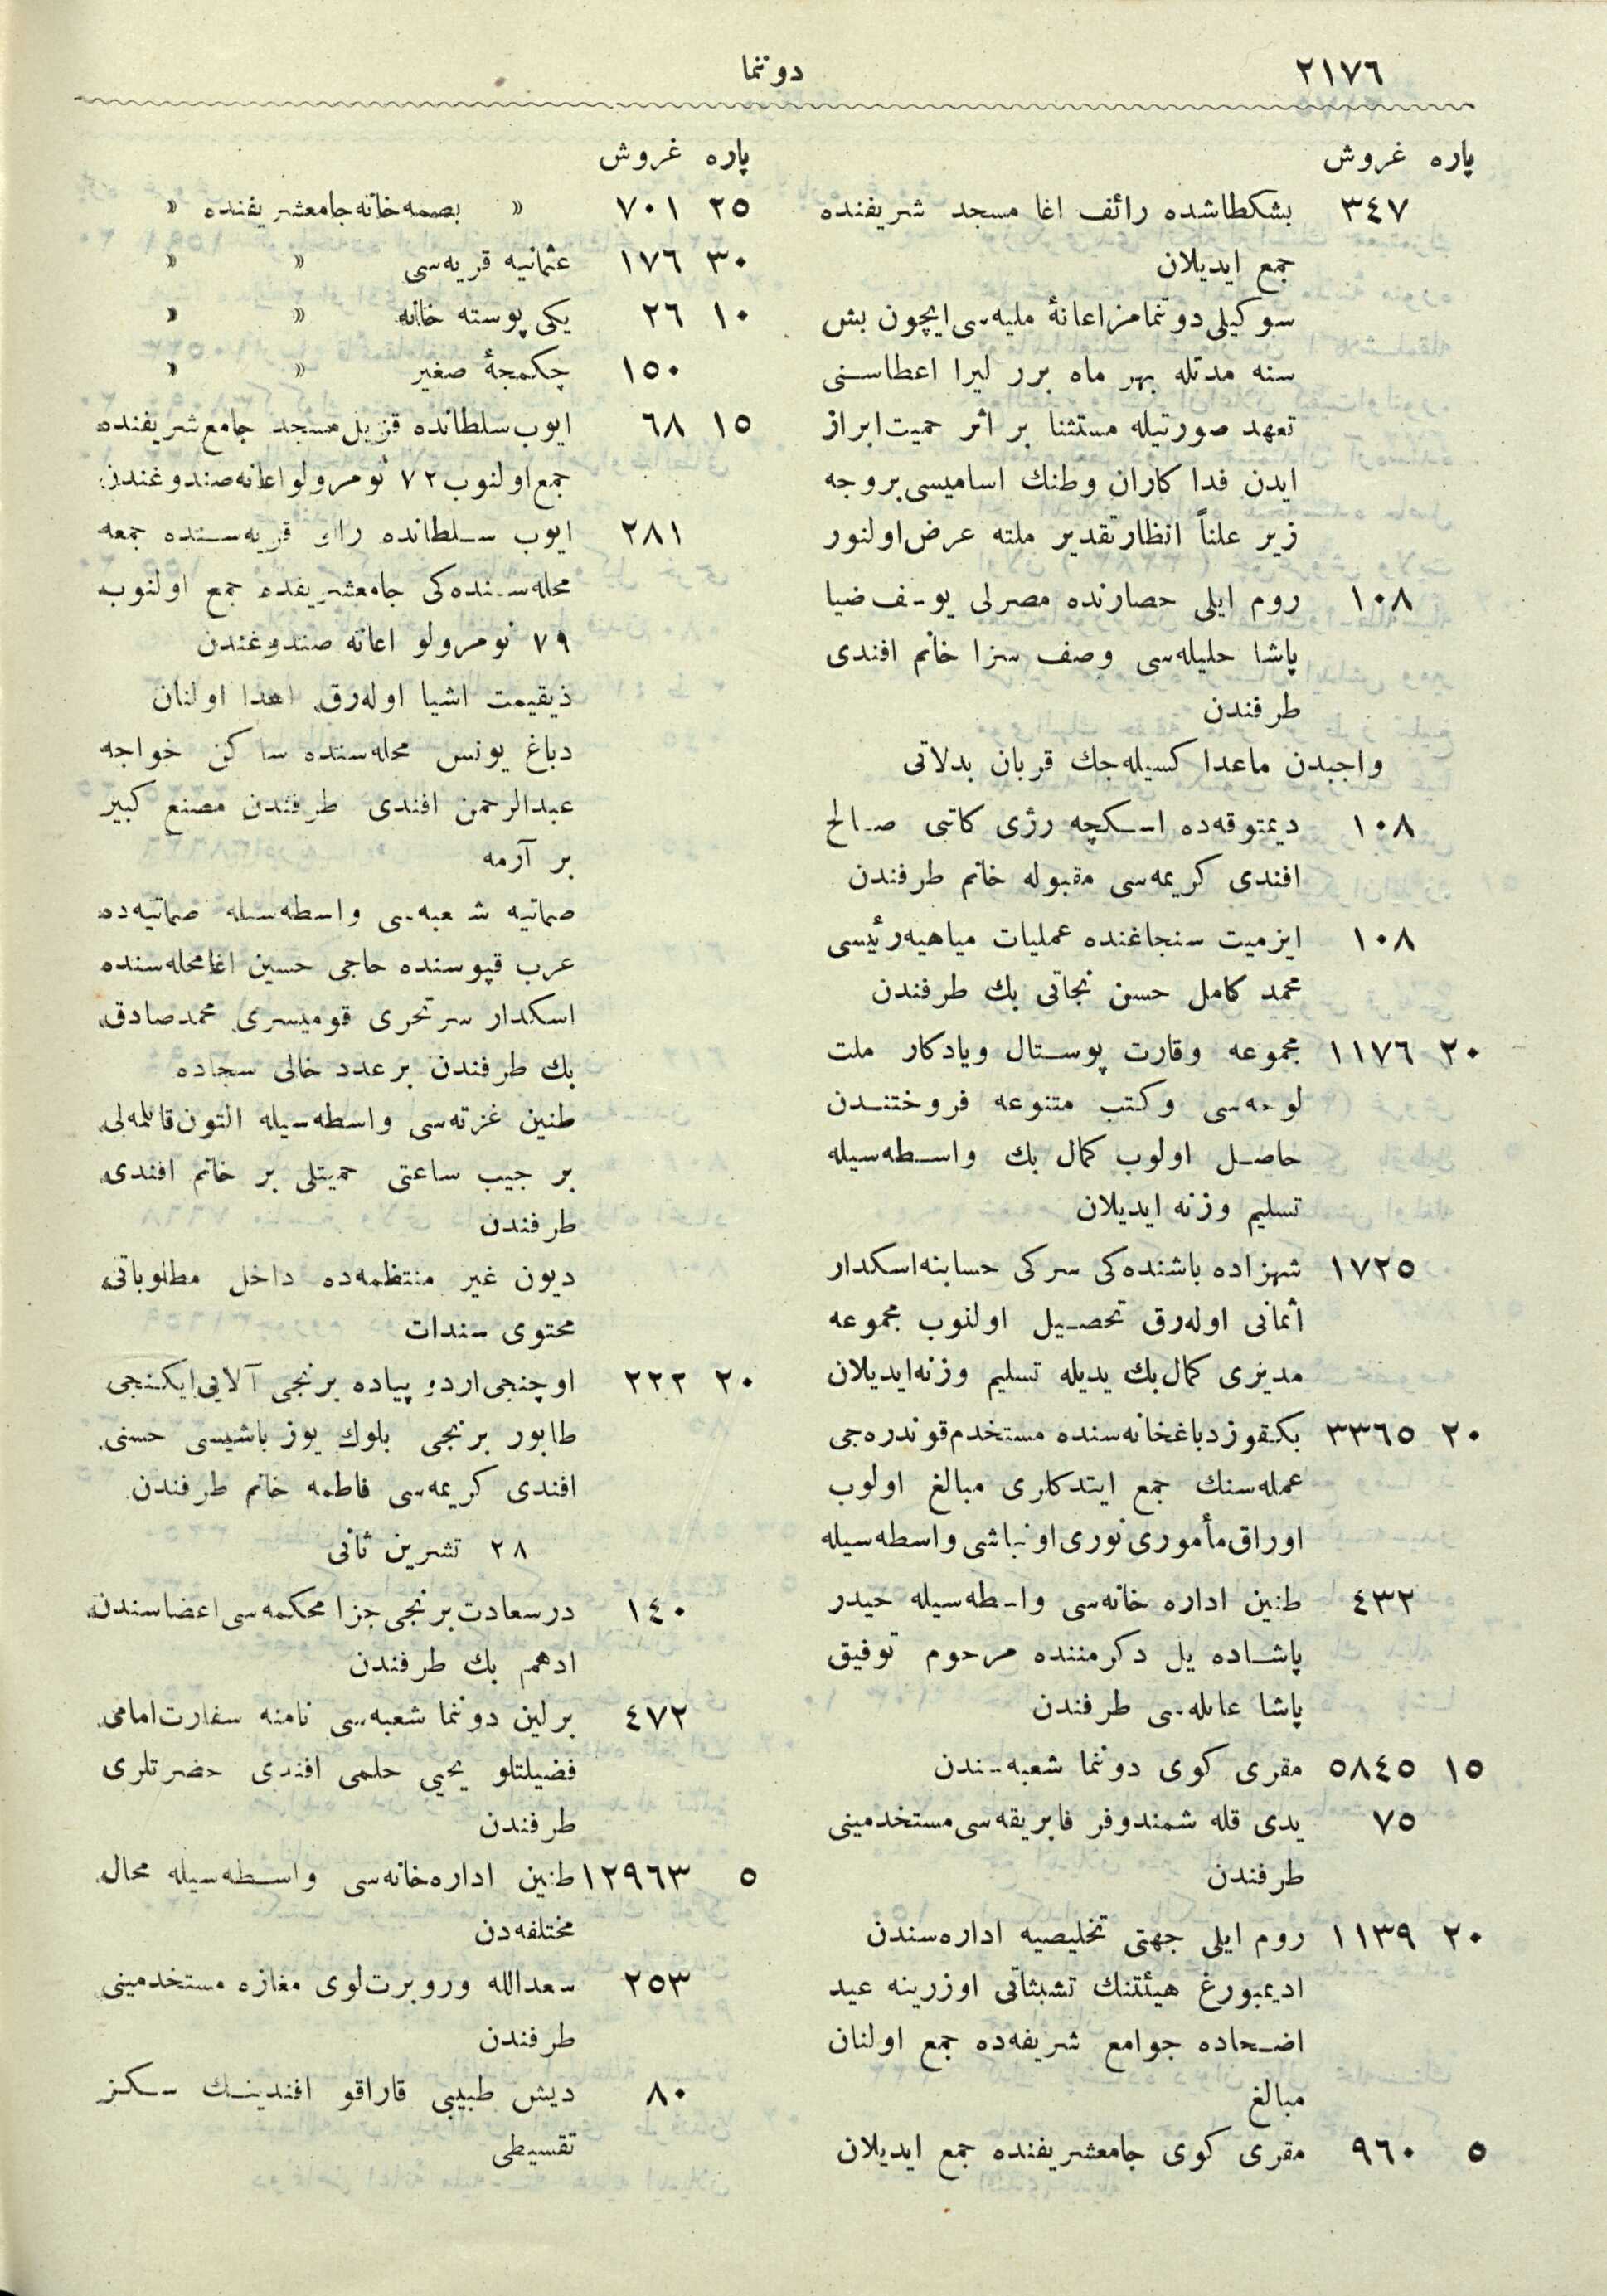 ٢١٧٦
دوننما
پاره غروش
٣٤٧ بشكطاشده رائف اغا مسجد شريفنده
جمع ايديلان
سوكيلى دوننمامز اعانهٔ مليه‌سى ايچون بش
سنه مدتله بهر ماه برر ليرا اعطاسنى
تعهد صورتيله مستثنا بر اثر حميت ابراز
ايدن فدا كاران وطنك اساميسى بروجه
زير علناً انظار تقدير ملته عرض اولنور
١٠٨ روم ايلى حصارنده مصرلى يوسف ضيا
پاشا حليله‌سى وصف سزا خانم افندى
طرفندن
واجبدن ماعدا كسيله‌جك قربان بدلاتى
١٠٨ ديمتوقه‌ده اسكچه رژى كاتبى صالح
افندى كريمه‌سى مقبوله خانم طرفندن
١٠٨ ايزميت سنجاغنده عمليات مياهيه رئيسى
محمد كامل حسن نجاتى بك طرفندن
٢٠ ١١٧٦ مجموعه وقارت پوستال ويادكار ملت
لوحه‌سى وكتب متنوعه فروختندن
حاصل اولوب كمال بك واسطه‌سيله
تسليم وزنه ايديلان
١٧٢٥ شهزاده باشنده‌كى سركى حسابنه اسكدار
أثمانى اوله‌رق تحصيل اولنوب مجموعه
مديرى كمال بك يديله تسليم وزنه ايديلان
٢٠ ٣٣٦٥ بكقوز دباغخانه‌سنده مستخدم قوندره‌جى
عمله‌سنك جمع ايتدكلرى مبالغ اولوب
اوراق مأمورى نورى اونباشى واسطه‌سيله
٤٣٢ طنين اداره خانه‌سى واسطه‌سيله حيدر
پاشاده يل دكرمننده مرحوم توفيق
پاشا عائله‌سى طرفندن
١٥ ٥٨٤٥ مقرى كوى دوننما شعبه‌سندن
٧٥ يدى قله شمندوفر فابريقه‌سى مستخدمينى
طرفندن
٢٠ ١١٣٩ روم ايلى جهتى تخليصيه اداره‌سندن
اديمبورغ هيئتنك تشبثاتى اوزرينه عيد
اضحاده جوامع شريفه‌ده جمع اولنان
مبالغ
٥ ٩٦٠ مقرى كوى جامعشريفنده جمع ايديلان
پاره غروش
٢٥ ٧٠١ » بصمه خانه جامعشريفنده »
٣٠ ١٧٦ عثمانيه قريه‌سى » »
١٠ ٢٦ يكى پوسته خانه » »
١٥٠ چكمجهٔ صغير » »
١٥ ٦٨ ايوب سلطانده قزيل مسجد جامع شريفنده
جمع اولنوب ٧٢ نومرولو اعانه صندوغندن
٢٨١ ايوب سلطانده رامى قريه‌سنده جمعه
محله‌سنده‌كى جامعشريفده جمع اولنوب
٧٩ نومرولو اعانه صندوغندن
ذيقيمت اشيا اوله‌رق اهدا اولنان
دباغ يونس محله‌سنده ساكن خواجه
عبدالرحمن افندى طرفندن مصنع كبير
بر آرمه
صماتيه شعبه‌سى واسطه‌سيله صماتيه‌ده
عرب قپوسنده حاجى حسين اغا محله‌سنده
اسكدار سر تحرى قوميسرى محمد صادق
بك طرفندن بر عدد خالى سجاده
طنين غزته‌سى واسطه‌سيله التون قاپلمه‌لى
بر جيب ساعتى حميتلى بر خانم افندى
طرفندن
ديون غير منتظمه‌ده داخل مطلوباتى
محتوى سندات
٢٠ ٢٢٢ اوچنجى اردو پياده برنجى آلايى ايكنجى
طابور برنجى بلوك يوز باشيسى حسنى
افندى كريمه‌سى فاطمه خانم طرفندن
٢٨ تشرين ثانى
١٤٠ درسعادت برنجى جزا محكمه‌سى اعضاسندن
ادهم بك طرفندن
٤٧٢ برلين دوننما شعبه‌سى نامنه سفارت امامى
فضيلتلو يحيى حلمى افندى حضرتلرى
طرفندن
٥ ١٢٩٦٣ طنين اداره‌خانه‌سى واسطه‌سيله محال
مختلفه‌دن
٢٥٣ سعدالله وروبرت لوى مغازه مستخدمينى
طرفندن
٨٠ ديش طبيبى قاراقو افندينك سكز
تقسيطى